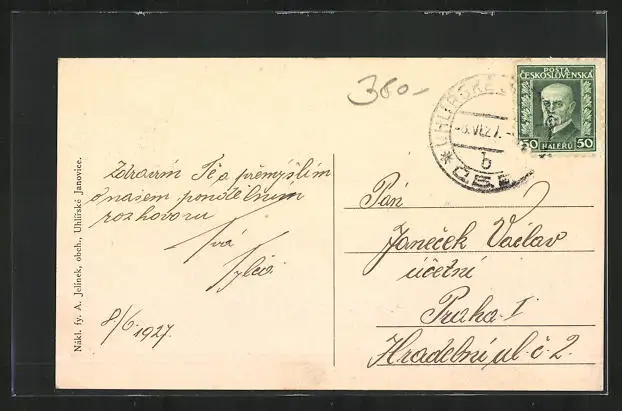 380-
POŠTA
ČESKOSLOVENSKÁ
50 HALÉŘŮ 50
UHLÍŘSKÉ
-8.VI.27.-
b
Č.S.R.
Zdravím Tě a přemýšlím
o našem pondělním
rozhovoru
Tvá
8/6. 1927.
Pán
Janeček Václav
účetní
Praha - I
Hradební ul. č. 2.
Nákl. fy. A. Jelínek, obch., Uhlířské Janovice.